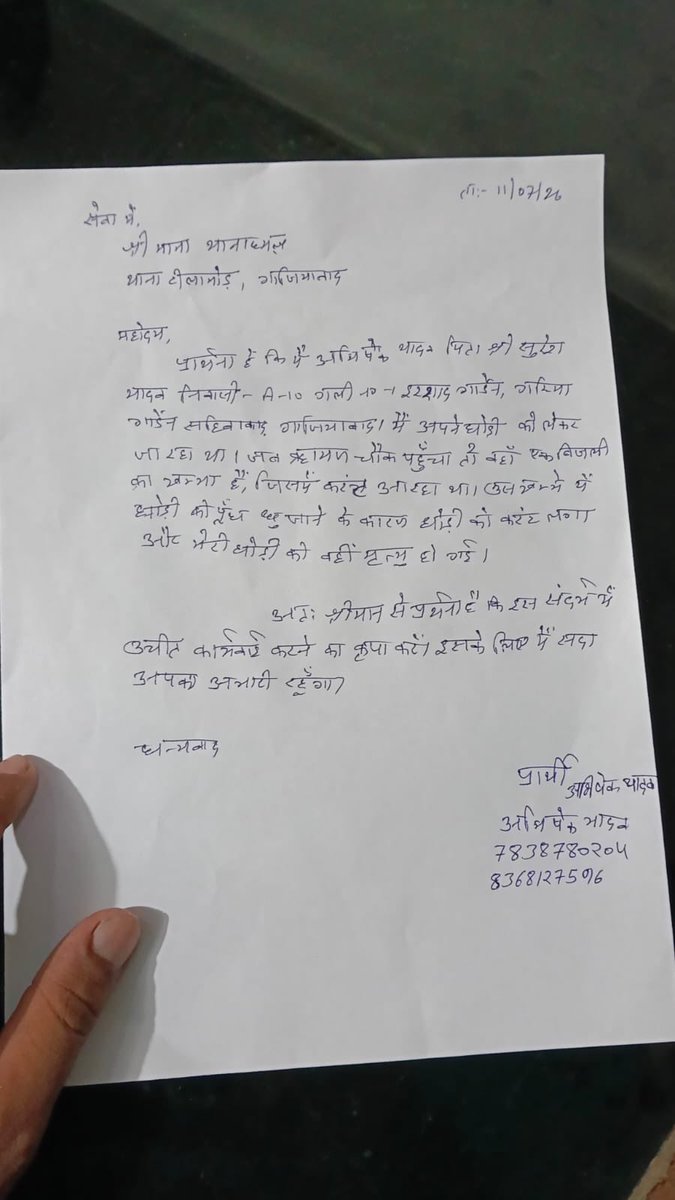 ता:- 11/07/26
सेवा में,
श्री मान थानाध्यक्ष
थाना टीलामोड़, गाजियाबाद
महोदय,
प्रार्थना है कि मैं अभिषेक यादव पिता श्री सुरेश
यादव निवासी- A-10 गली न०-1 इरशाद गार्डेन, गरिमा
गार्डेन साहिबाबाद गाजियाबाद। मैं अपने घोड़ी को लेकर
जा रहा था। जब चौक पहुँचा तो वहाँ एक बिजली
का खम्भा है, जिसमें करंट आ रहा था। उस खम्भे में
घोड़ी को पूँछ छु जाने के कारण घोड़ी को करंट लगा
और मेरी घोड़ी की वहीं मृत्यु हो गई।
अतः श्रीमान से प्रार्थना है कि इस संदर्भ में
उचीत कार्यवाई करने का कृपा करें। इसके लिए मैं सदा
आपका आभारी रहूँगा।
धन्यवाद
प्रार्थी
अभिषेक यादव
अभिषेक यादव
7838780204
8368127596